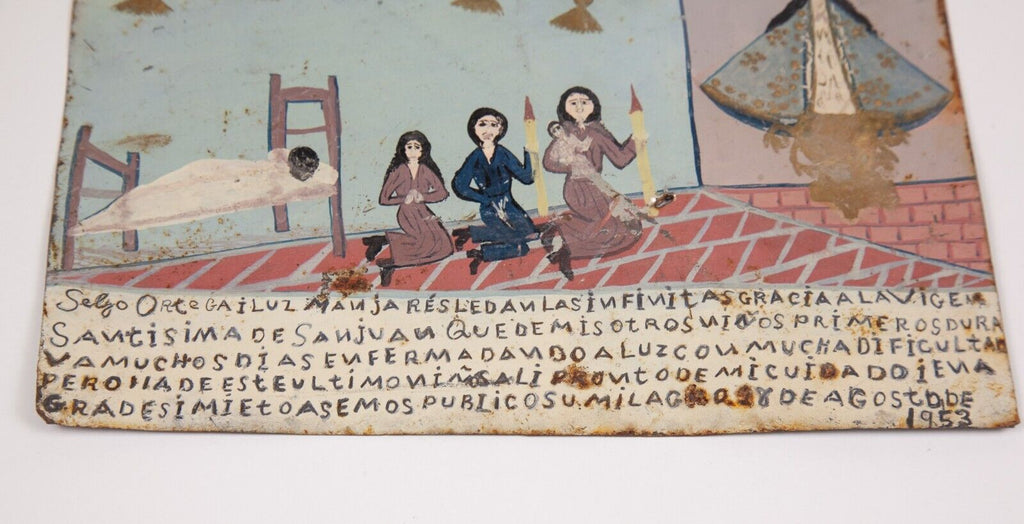 Selgo ORTEGA I LUZ MANJARES LE DAN LAS INFINITAS GRACIA A LA VIGEN
SANTISIMA DE SAN JUAN QUE DE MIS OTROS NIÑOS PRIMEROS DURA
VA MUCHOS DIAS ENFERMA DANDO A LUZ CON MUCHA DIFICULTAD
PERO IIA DE ESTE ULTIMO NIÑO SALI PRONTO DE MI CUIDADO I EN A
GRADESIMIETO ASEMOS PUBLICO SU MILAGRO 8 DE AGOSTO DE
1953